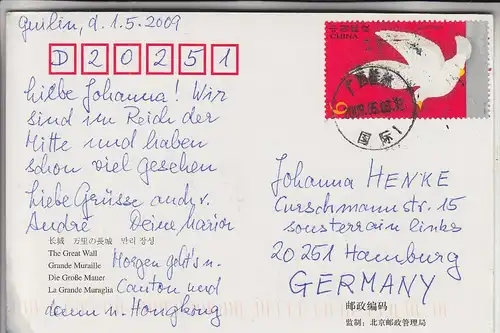 Guilin, d. 1.5.2009
D 2 0 2 5 1
liebe Johanna! Wir
sind im Reich der
Mitte und haben
schon viel gesehen
Liebe Grüsse auch v.
André Deine Marion
长城 万里の長城 만리 장성
The Great Wall
Grande Muraille
Die Große Mauer
La Grande Muraglia
Morgen geht's n.
Canton und
dann n. Hongkong
中国邮政
CHINA
6
广西桂林
国际1
Johanna HENKE
Curschmannstr. 15
sousterrain links
20251 Hamburg
GERMANY
邮政编码
监制：北京邮政管理局